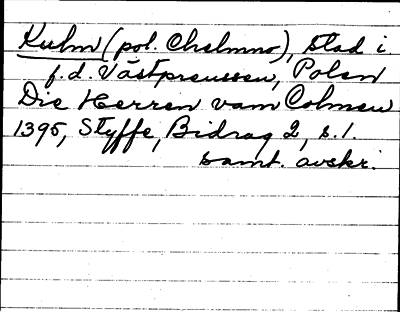 Kulm (pol. Chelmno), stad i
f.d. Västpreussen, Polen
Die Herren vam Colmen
1395, Styffe, Bidrag 2, s. 1.
samt. avskr.